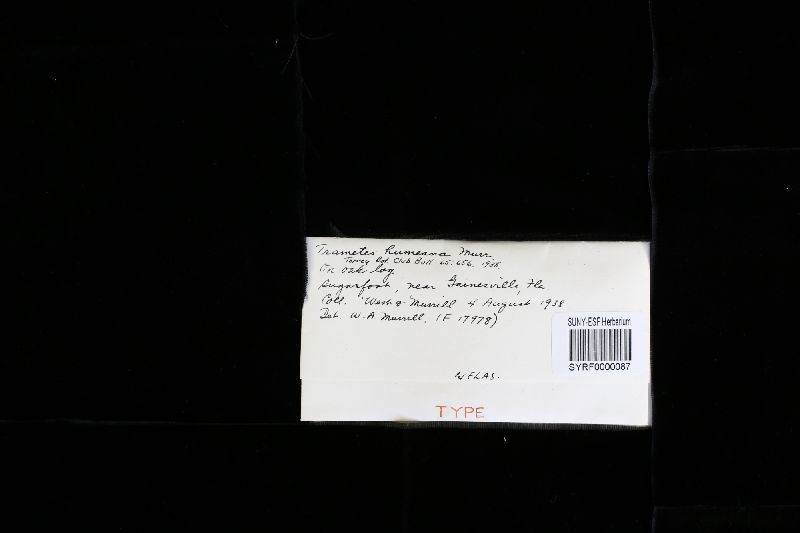 Trametes humeana Murr.
Torrey Bot. Club Bull. 65: 656. 1938.
On oak log
Sugarfoot, near Gainesville, Fla
Coll. West & Murrill 4 August 1938
Det. W. A Murrill, (F 17978)
SUNY-ESF Herbarium
SYRF0000087
FLAS.
TYPE